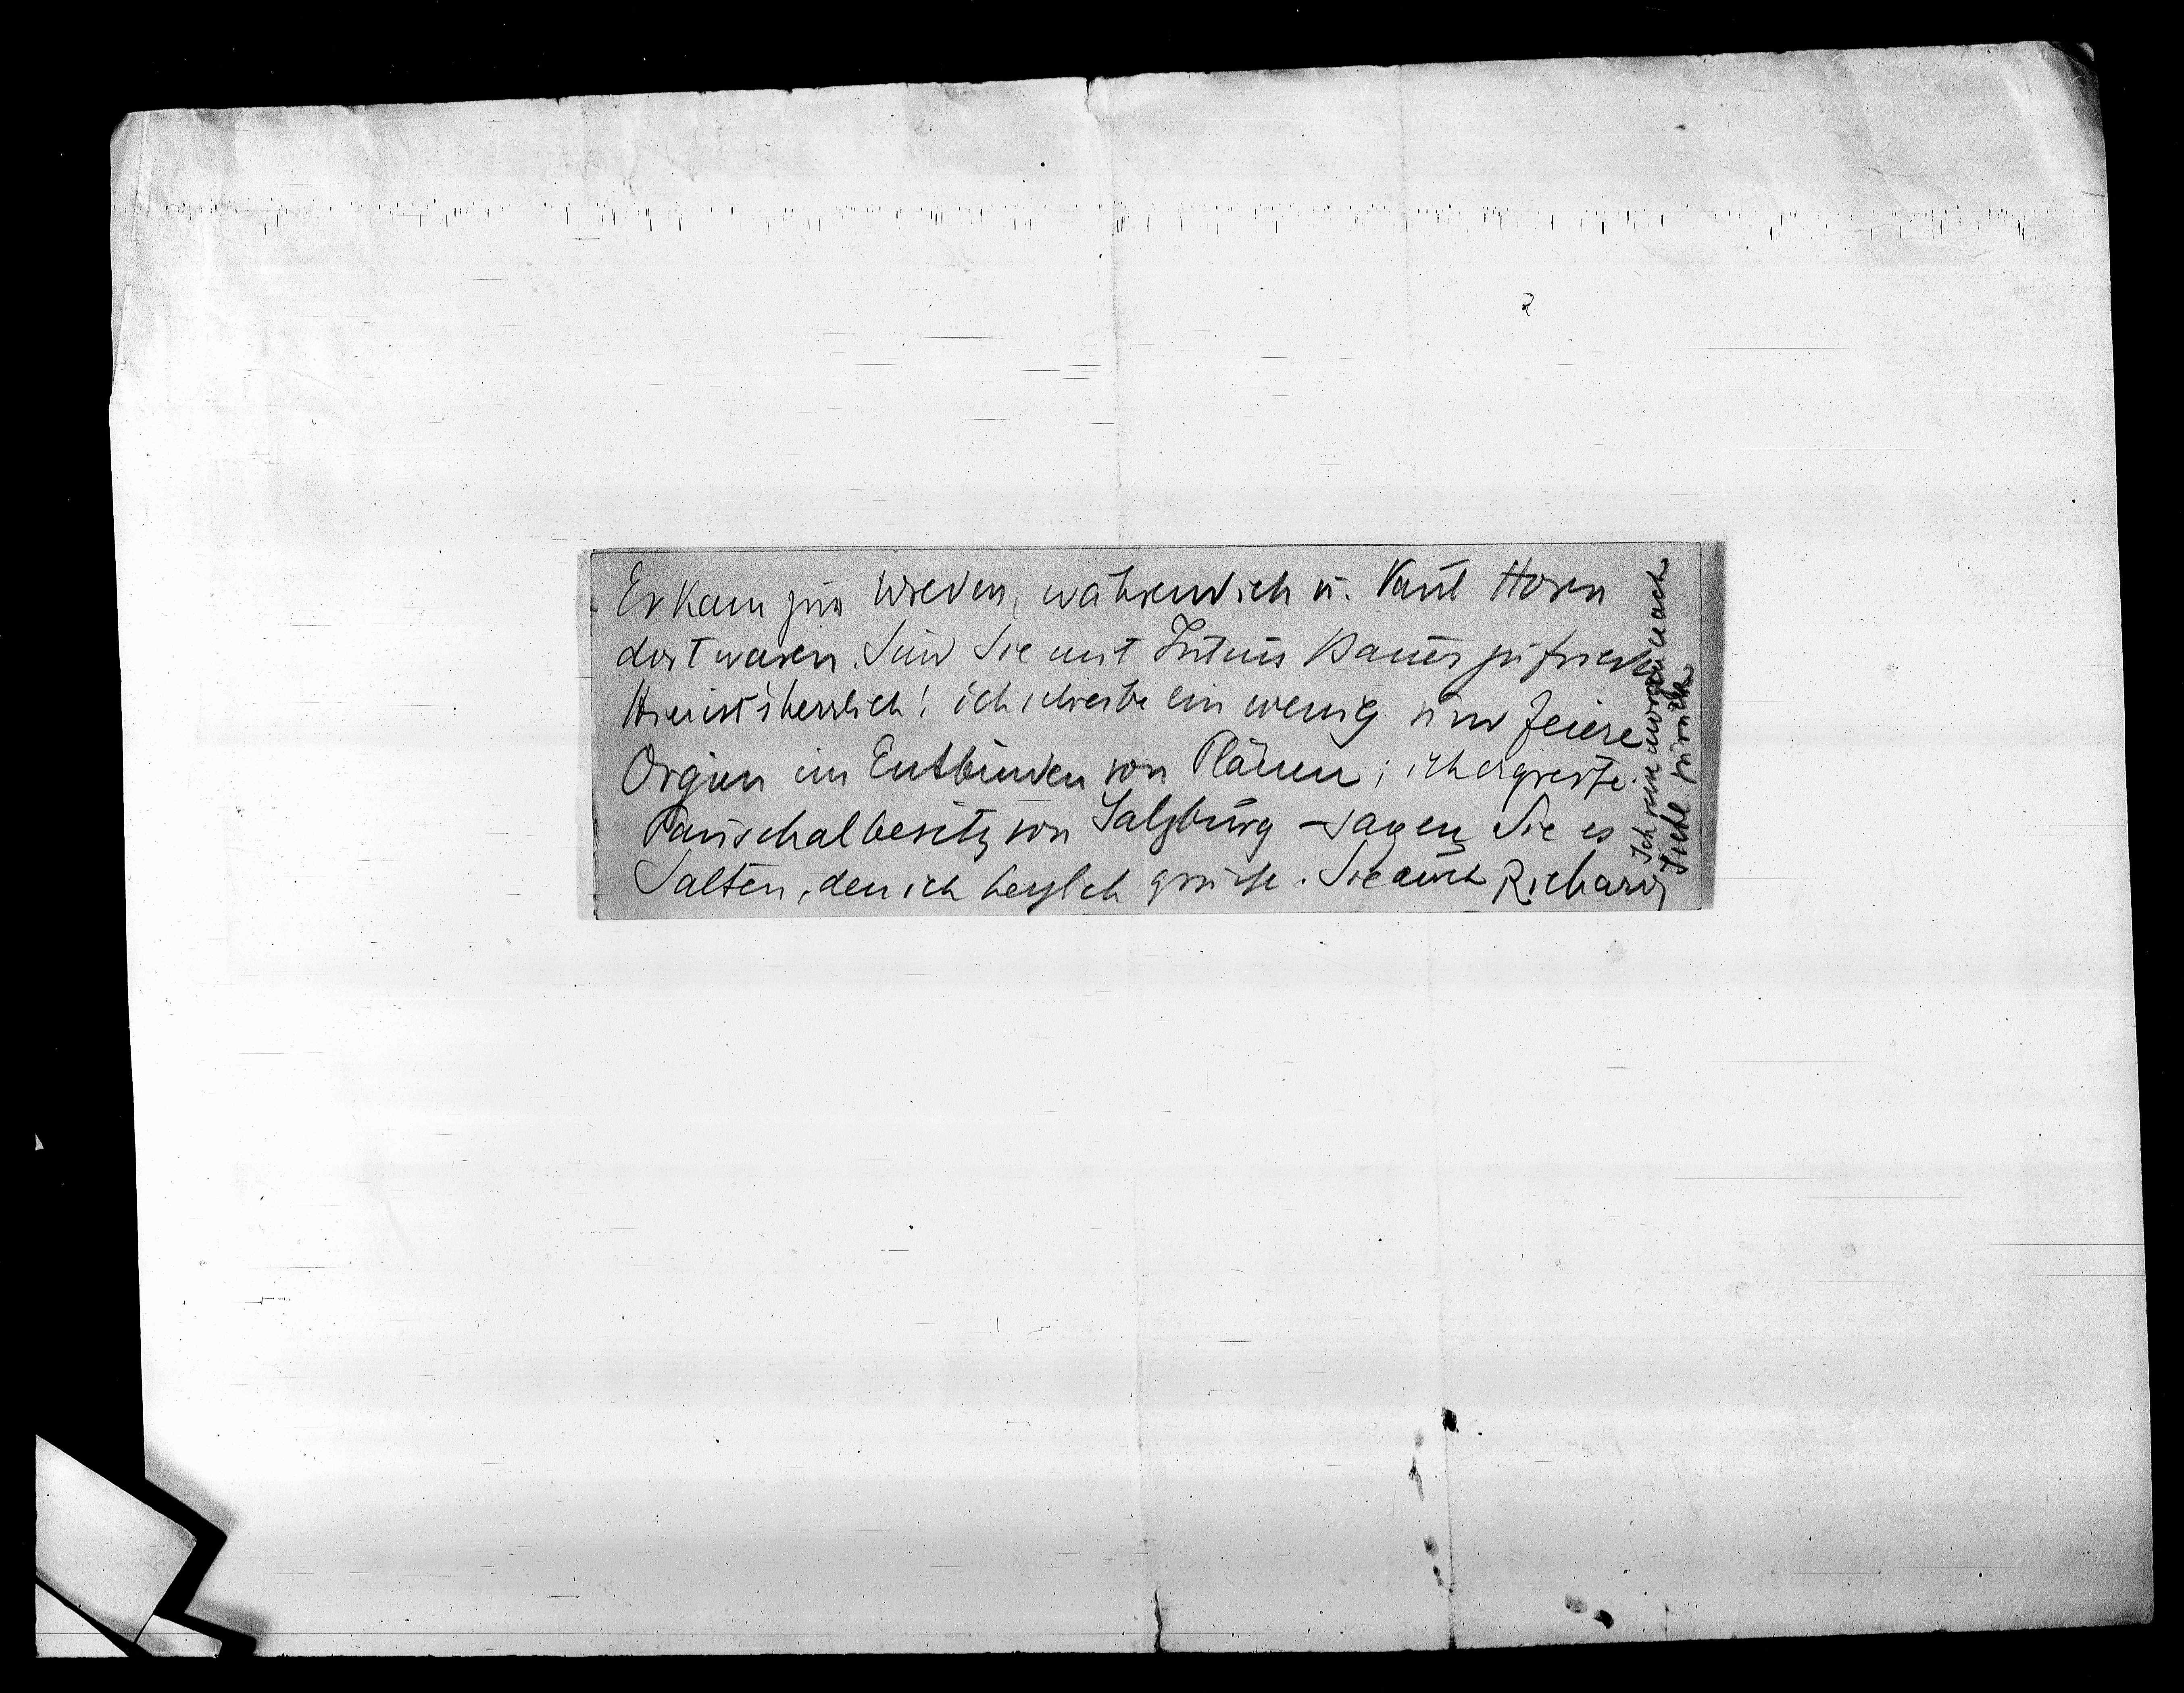 Er kam zur Wieden, während ich u. Paul Horn
dort waren. Sind Sie mit Intimus Bauer zufrieden
Hier ist's herrlich! ich schreibe ein wenig und feiere
Orgien im Entbinden von Plänen; ich ergreife
Pauschalbesitz von Salzburg – sagen Sie es
Salten, den ich herzlich grüsse. Sie auch Richard
Ich reise morgen nach
Ischl zurück
2